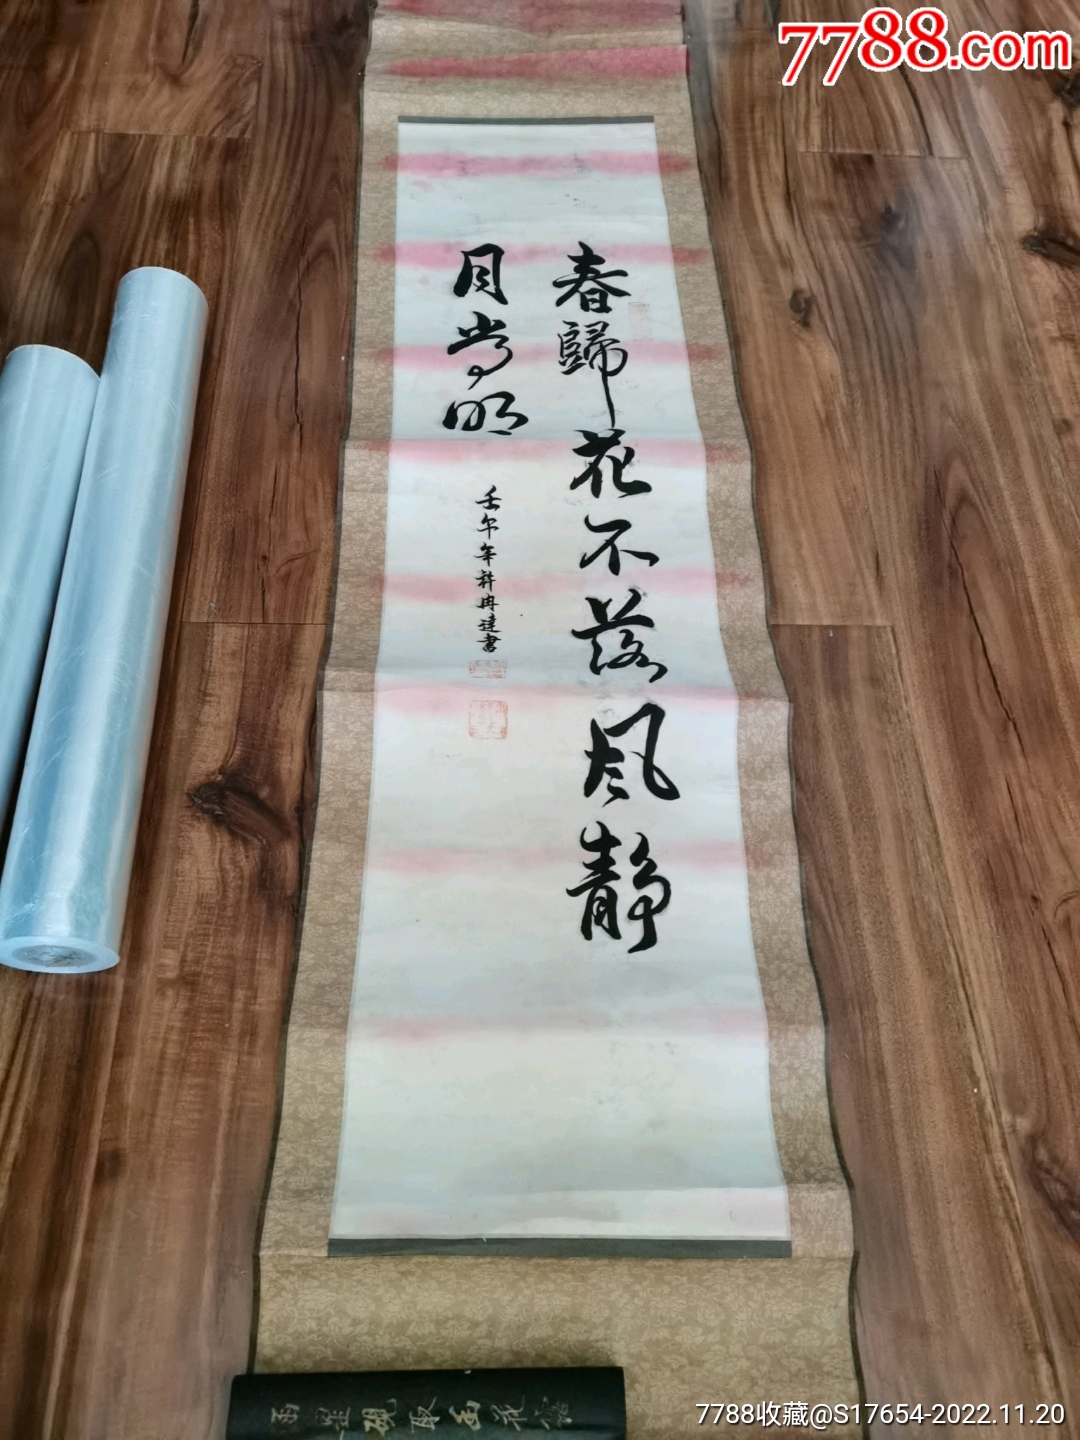 7788.com
春歸花不落風靜
月常明
壬午年許冉達書
7788收藏@S17654-2022.11.20